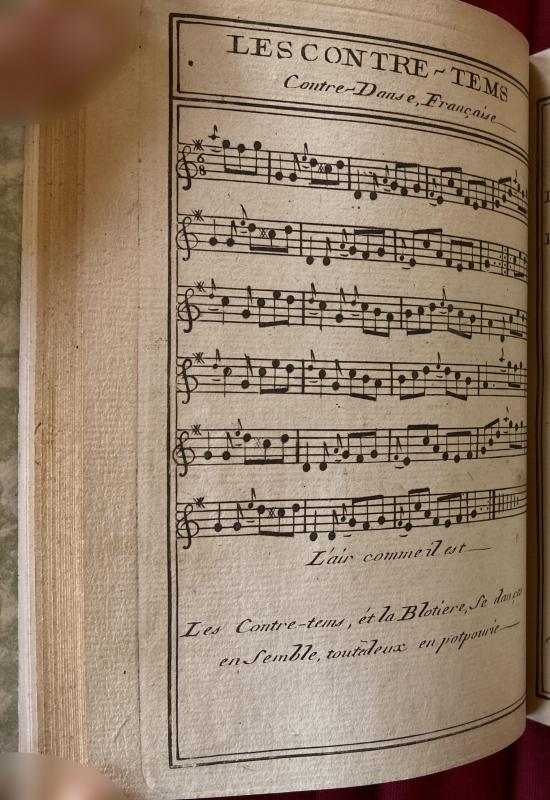 LES CONTRE~TEMS
Contre-Danse, Française
6
8
L'air comme il est
Les Contre-tems, ét la Blotiere, Se dançes
en Semble, toutédeux en potpourie